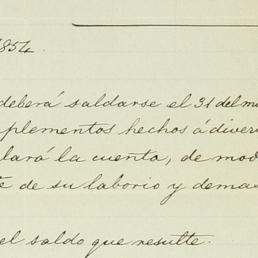 1854.
deberá saldarse el 31 del m
plementos hechos á diver
lará la cuenta, de mod
de su laborio y demas
el saldo que resulte.